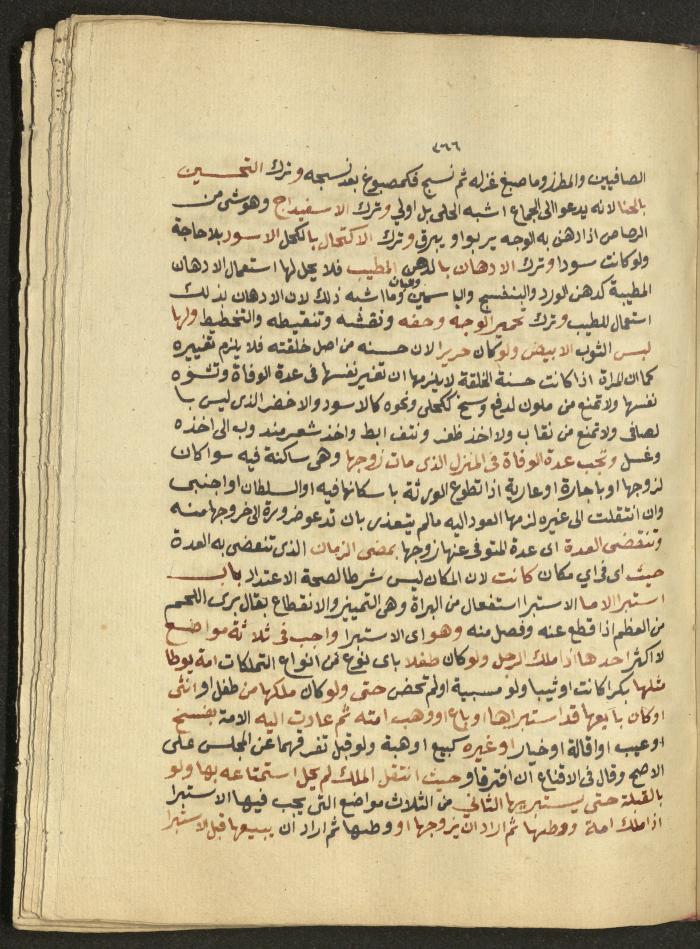 ٢٦٦
الصافيين والمطرز وما صبغ غزله ثم نسج فكمصبوغ بعد نسجه وترك التحسين
بالحنا لانه يدعو الى الجماع اشبه الحلى بل اولي وترك الاسفيداج وهو شى من
الرصاص اذا دهن به الوجه يربوا ويبرق وترك الاكتحال بالكحل الاسود بلا حاجة
ولو كانت سودا وترك الادهان بالدهن المطيب فلا يحل لها استعمال الادهان
المطيبة كدهن الورد والبنفسج والياسمين والبان وما اشبه ذلك لان الادهان بذلك
استعمال للطيب وترك تحمير الوجه وحفه ونقشه وتنقيطه والتخطيط ولها
لبس الثوب الابيض ولو كان حريرا لان حسنه من اصل خلقته فلا يلزم تغييره
كما ان المراة اذا كانت حسنة الخلقة لا يلزمها ان تغير نفسها فى عدة الوفاة وتشوه
نفسها ولا تمنع من ملون لدفع وسخ ككحلى ونحوه كالاسود والاخضر الذى ليس با
لصافى ولا تمنع من نقاب ولا اخذ ظفر ونتف ابط واخذ شعر مندوب الى اخذه
وغسل وتجب عدة الوفاة فى المنزل الذى مات زوجها وهى ساكنة فيه سوا كان
لزوجها او باجارة او عارية اذا تطوع الورثة باسكانها فيه او السلطان او اجنبى
وان انتقلت الى غيره لزمها العود اليه ما لم يتعذر بان تدعو ضرورة الى خروجها منه
وتنقضى العدة اى عدة المتوفى عنها زوجها بمضى الزمان الذى تنقضى به العدة
حيث اى فى اى مكان كانت لان المكان ليس شرطا لصحة الاعتداد باب
استبرا الاما الاستبرا استفعال من البراة وهى التمييز والانقطاع يقال برى اللحم
من العظم اذا قطع عنه وفصل منه وهو اى الاستبرا واجب فى ثلاثة مواضع
لا اكثر احدها اذا ملك الرجل ولو كان طفلا باى نوع من انواع التملكات امة يوطا
مثلها بكرا كانت او ثيبا ولو مسبية او لم تحض حتى ولو كان ملكها من طفل او انثى
او كان بايعها قد استبراها او باع او وهب امته ثم عادت اليه الامة بفسخ
او عيب او اقالة او خيار او غيره كبيع او هبة ولو قبل تفرقهما عن المجلس على
الاصح وقال فى الاقناع ان افترقا وحيث انتقل الملك لم يحل استمتاعه بها ولو
بالقبلة حتى يستبريها الثانى من الثلاث مواضع التى يجب فيها الاستبرا
اذا ملك امة ووطيها ثم اراد ان يزوجها او وطيها ثم اراد ان يبيعها قبل الاستبرا